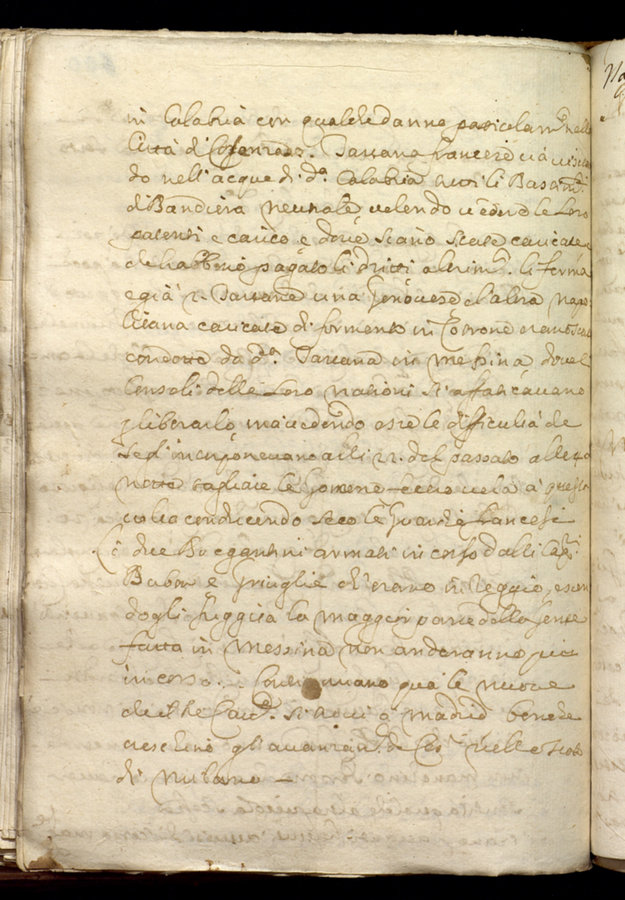 in Calabria con qualche danno particolarm.te nella
Città di Cosenza. Tartana francese và visitan
do nell'acque di d.a Calabria tutti li Bastim.ti
di Bandiera neutrale volendo vedere le Loro
patenti e carico e dove siano state caricate e
che habbino pagato li dritti altrim.ti li ferma
e già 2. Tartane una Genovese e l'altra Napo
litana caricate di formento in Cotrone erano state
condotte da d.a Tartana in Messina dove li
Consoli delle Loro nationi si affaticavano
p liberarlo ma vedendo le difficultà che
se gl'interponevano alli 22. del passato alle
notte tagliate le Gomene fecero vela à questa
volta conducendo seco le Guardie francesi
è due Bregantini armati in corso dalli Cap.i
Babon e che erano in Reggio, essen
dogli fuggita la maggior parte della Gente
fatta in Messina non anderanno più
in corso. Continuano quà le nuove
che il Rè Catt.o si trovi à Madrid benche
creschino gl'avanzam.ti de Ces.i nello Stato
di Milano —